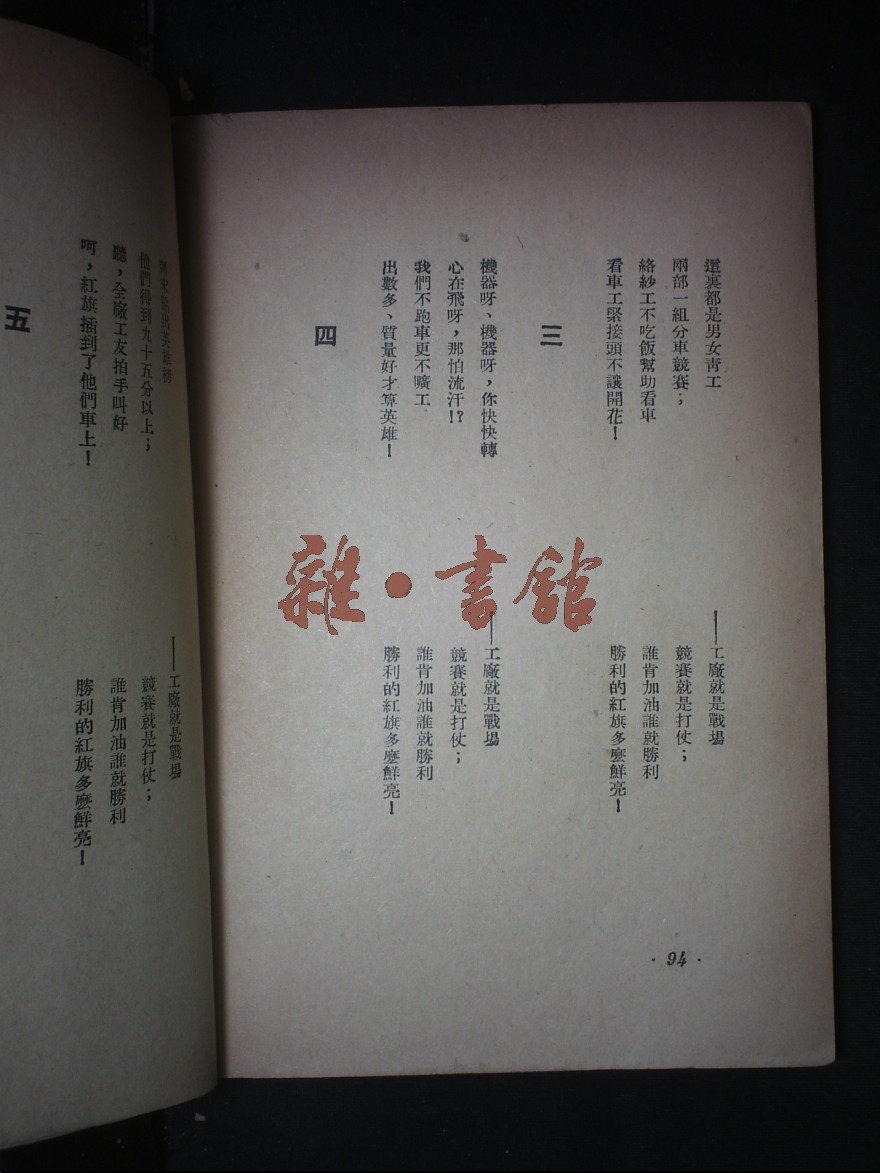 這裏都是男女靑工
兩部一組分車競賽；
絡紗工不吃飯幫助看車
看車工緊接頭不讓開花！
——工廠就是戰場
競賽就是打仗；
誰肯加油誰就勝利
勝利的紅旗多麼鮮亮！
三
機器呀、機器呀，你快快轉
心在飛呀，那怕流汗！？
我們不跑車更不曠工
出數多、質量好才算英雄！
——工廠就是戰場
競賽就是打仗；
誰肯加油誰就勝利
勝利的紅旗多麼鮮亮！
四
·94·
家貼出英雄榜
他們得到九十五分以上；
聽，全廠工友拍手叫好
呵，紅旗插到了他們車上！
——工廠就是戰場
競賽就是打仗；
誰肯加油誰就勝利
勝利的紅旗多麼鮮亮！
五
雜·書館